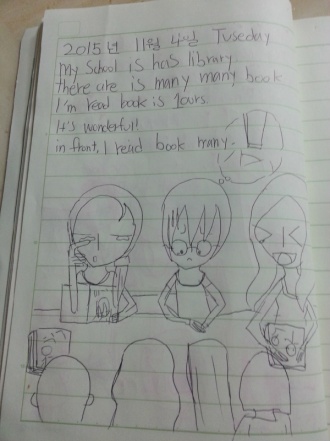 2015년 11월 4일 Tuseday
My School is has library.
there are is many many book
I'm read book is 1ours.
It's wonderful!
in front, I read book many.